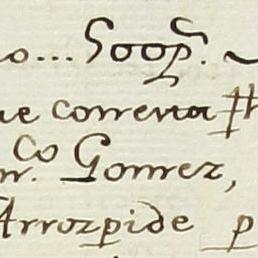 o... 500 p.
ue correrá
n.co Gomez,
Arrozpide p